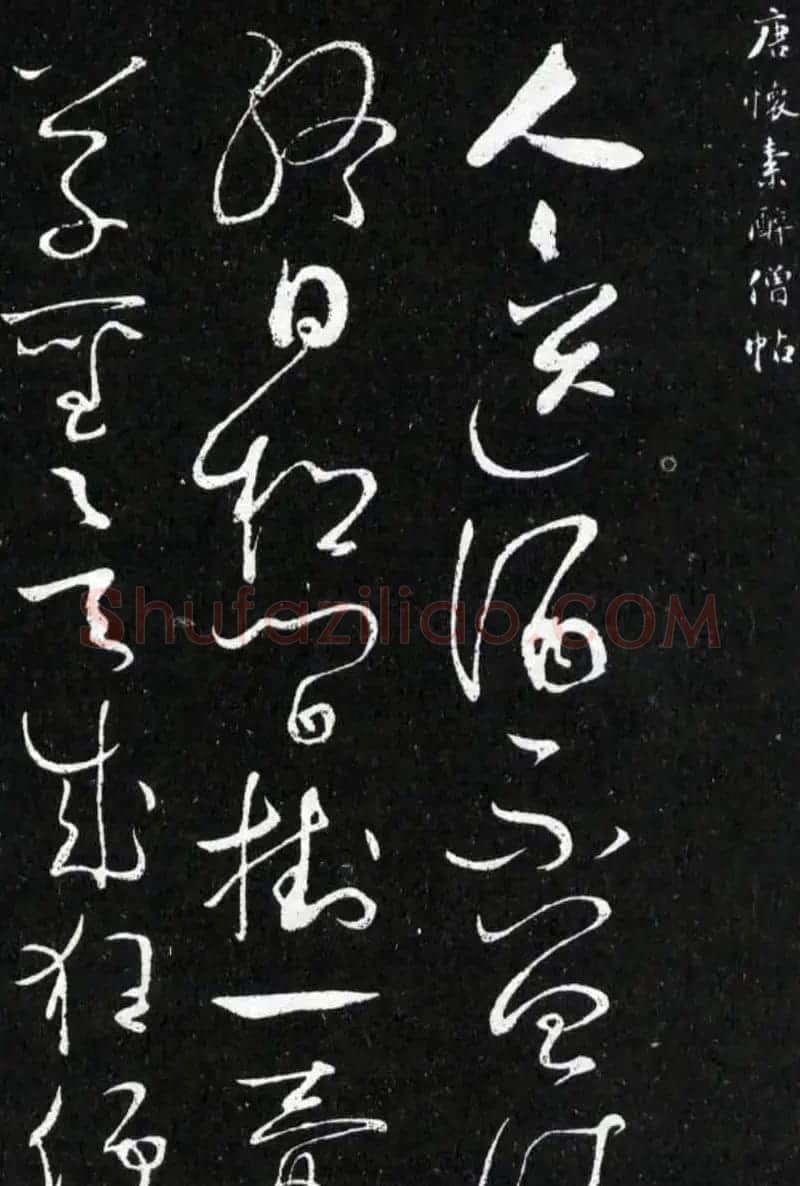 唐懷素醉僧帖
人人送酒不曾
終日松間掛一壺
草聖欲成狂便
Shufaziliao.COM